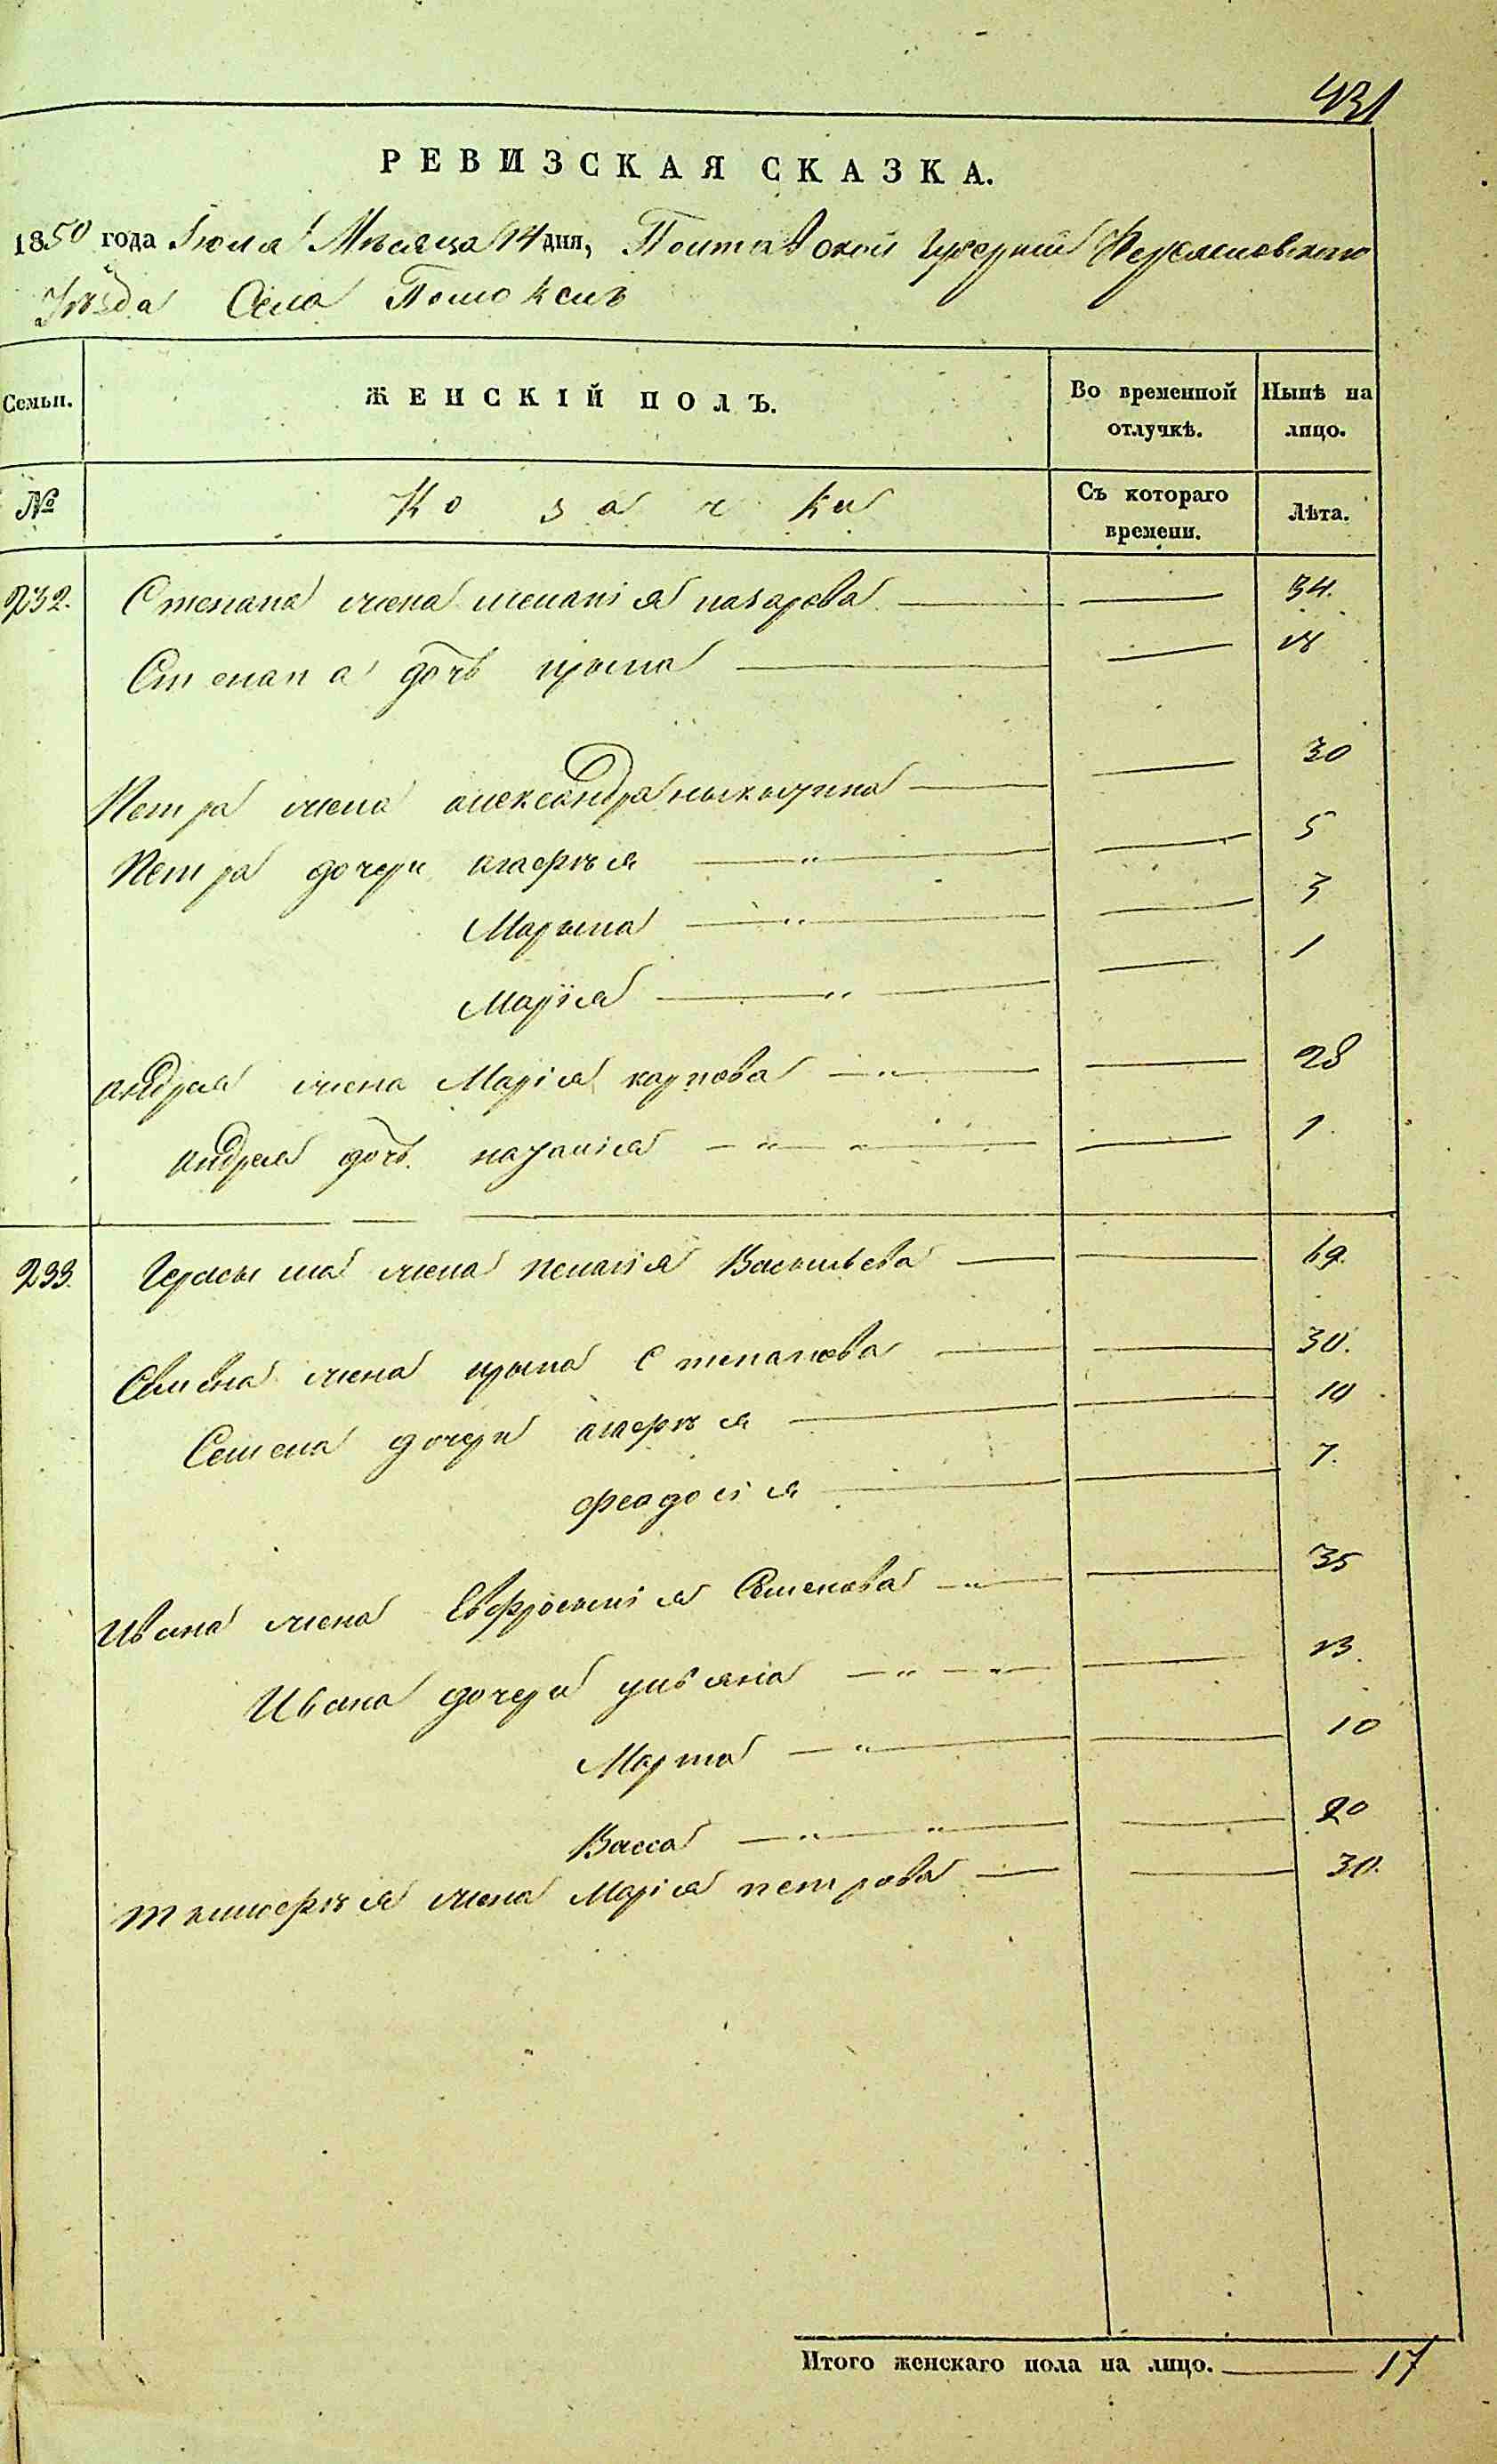 431
РЕВИЗСКАЯ СКАЗКА.
1850 года Іюля Мѣсяца 14 дня, Полтавской Губерніи
Уѣзда Села
Семьи. ЖЕНСКІЙ ПОЛЪ. Во временной отлучкѣ. Нынѣ на лицо.
№ Козачки Съ котораго времени. Лѣта.
232. Степана жена меланія назарова 34.
Степана дочь ирына
Петра жена александра 30
Петра дочери агафія 5
Марына 3
Марія 1
андрея жена Марія карпова 28
андрея дочь наталія 1
233. Герасыма жена пелагія Васыльева 69.
Семена жена ирына Степанова 30.
Семена дочери агафія 10
феодосія 7.
Ивана жена Евфросынія Семенова 35
Ивана дочери уліяна 13.
Марта 10
Васса 20
тимофѣя жена Марія петрова 30.
Итого женскаго пола на лицо. 17